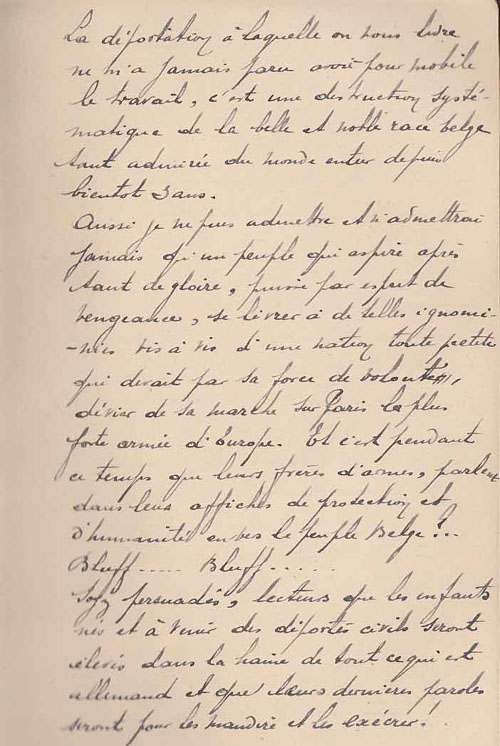 La déportation à laquelle on nous livre
ne m'a jamais paru avoir pour mobile
le travail, c'est une destruction systé-
matique de la belle et noble race belge
tant admirée du monde entier depuis
bientot 3 ans.
Aussi je ne puis admettre et n'admettrai
jamais qu'un peuple qui aspire après
tant de gloire, puisse par esprit de
vengeance, se livrer à de telles ignomi-
-nies vis à vis d'une nation toute petite
qui devait par sa force de volonté,
dévier de sa marche sur Paris la plus
forte armée d'Europe. Et c'est pendant
ce temps que leurs frères d'armes, parlent
dans leurs affiches de protection et
d'humanité envers le peuple Belge?..
Bluff..... Bluff.....
Soyz persuadés, lecteurs que les enfants
nés et à venir des déportés civils seront
élevés dans la haine de tout ce qui est
allemand et que leurs dernières paroles
seront pour les maudire et les exécrer!